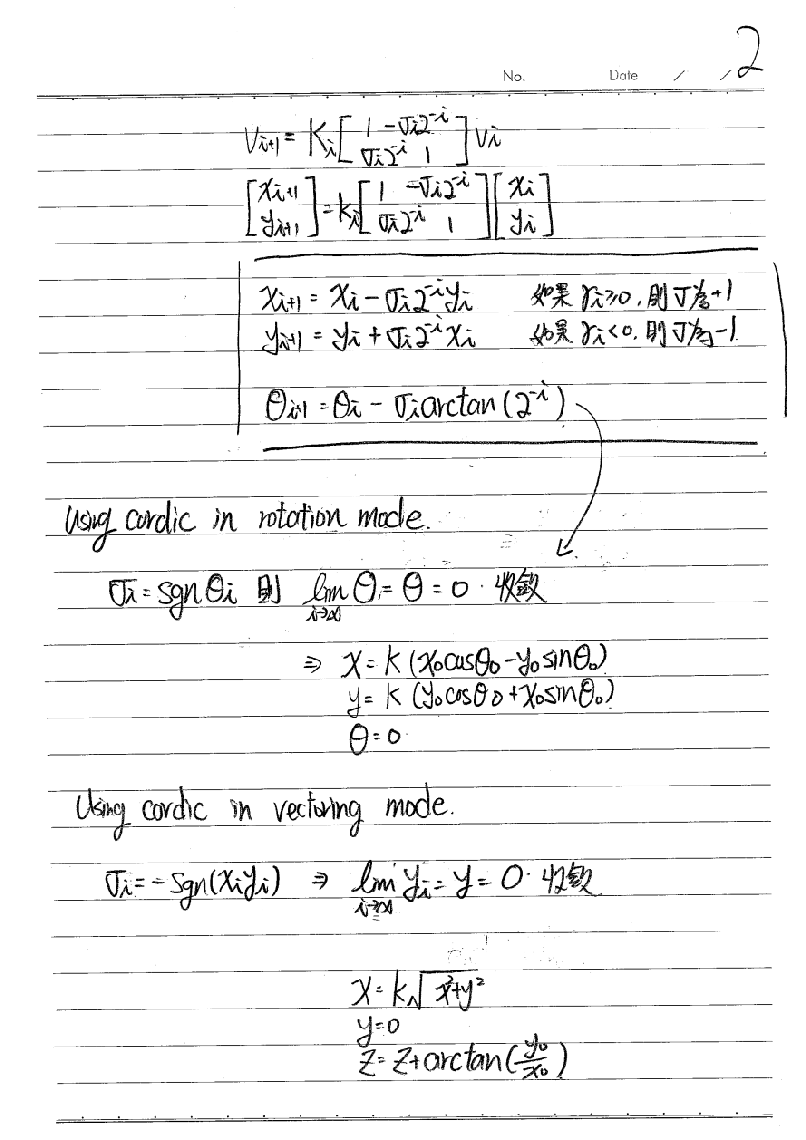 2
No. Date / /
V_{i+1} = K_i [ 1 -σ_i 2^{-i} ; σ_i 2^{-i} 1 ] V_i
[ x_{i+1} ; y_{i+1} ] = k_i [ 1 -σ_i 2^{-i} ; σ_i 2^{-i} 1 ] [ x_i ; y_i ]
x_{i+1} = x_i - σ_i 2^{-i} y_i 如果 γ_i ≥ 0, 則 σ為 +1
y_{i+1} = y_i + σ_i 2^{-i} x_i 如果 γ_i < 0, 則 σ為 -1
θ_{i+1} = θ_i - σ_i arctan(2^{-i})
Using cordic in rotation mode.
σ_i = sgn θ_i 則 lim_{i→∞} θ_i = θ = 0. 收斂
⇒ x = K (x_0 cosθ_0 - y_0 sinθ_0)
y = K (y_0 cosθ_0 + x_0 sinθ_0)
θ = 0
Using cordic in vectoring mode.
σ_i = - sgn(x_i y_i) ⇒ lim_{i→∞} y_i = y = 0. 收斂
x = k√(x²+y²)
y = 0
z = z + arctan(y_0/x_0)